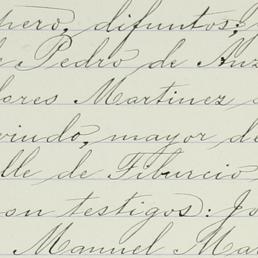 pero, difuntos;
e Pedro de Anz
lares Martinez
viudo, mayor de
lle de Tiburcio
on testigos: Jo
Manuel Mar